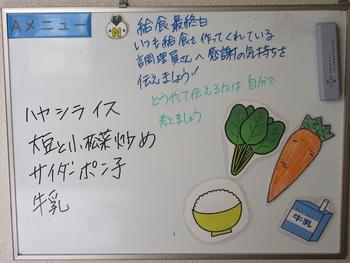 Aメニュー
N
給食最終日
いつも給食を作ってくれている
調理員さんへ感謝の気持ちを
伝えましょう!
どうやって伝えるかは自分で
考えましょう
ハヤシライス
大豆と小松菜炒め
サイダーポンチ
牛乳
牛乳